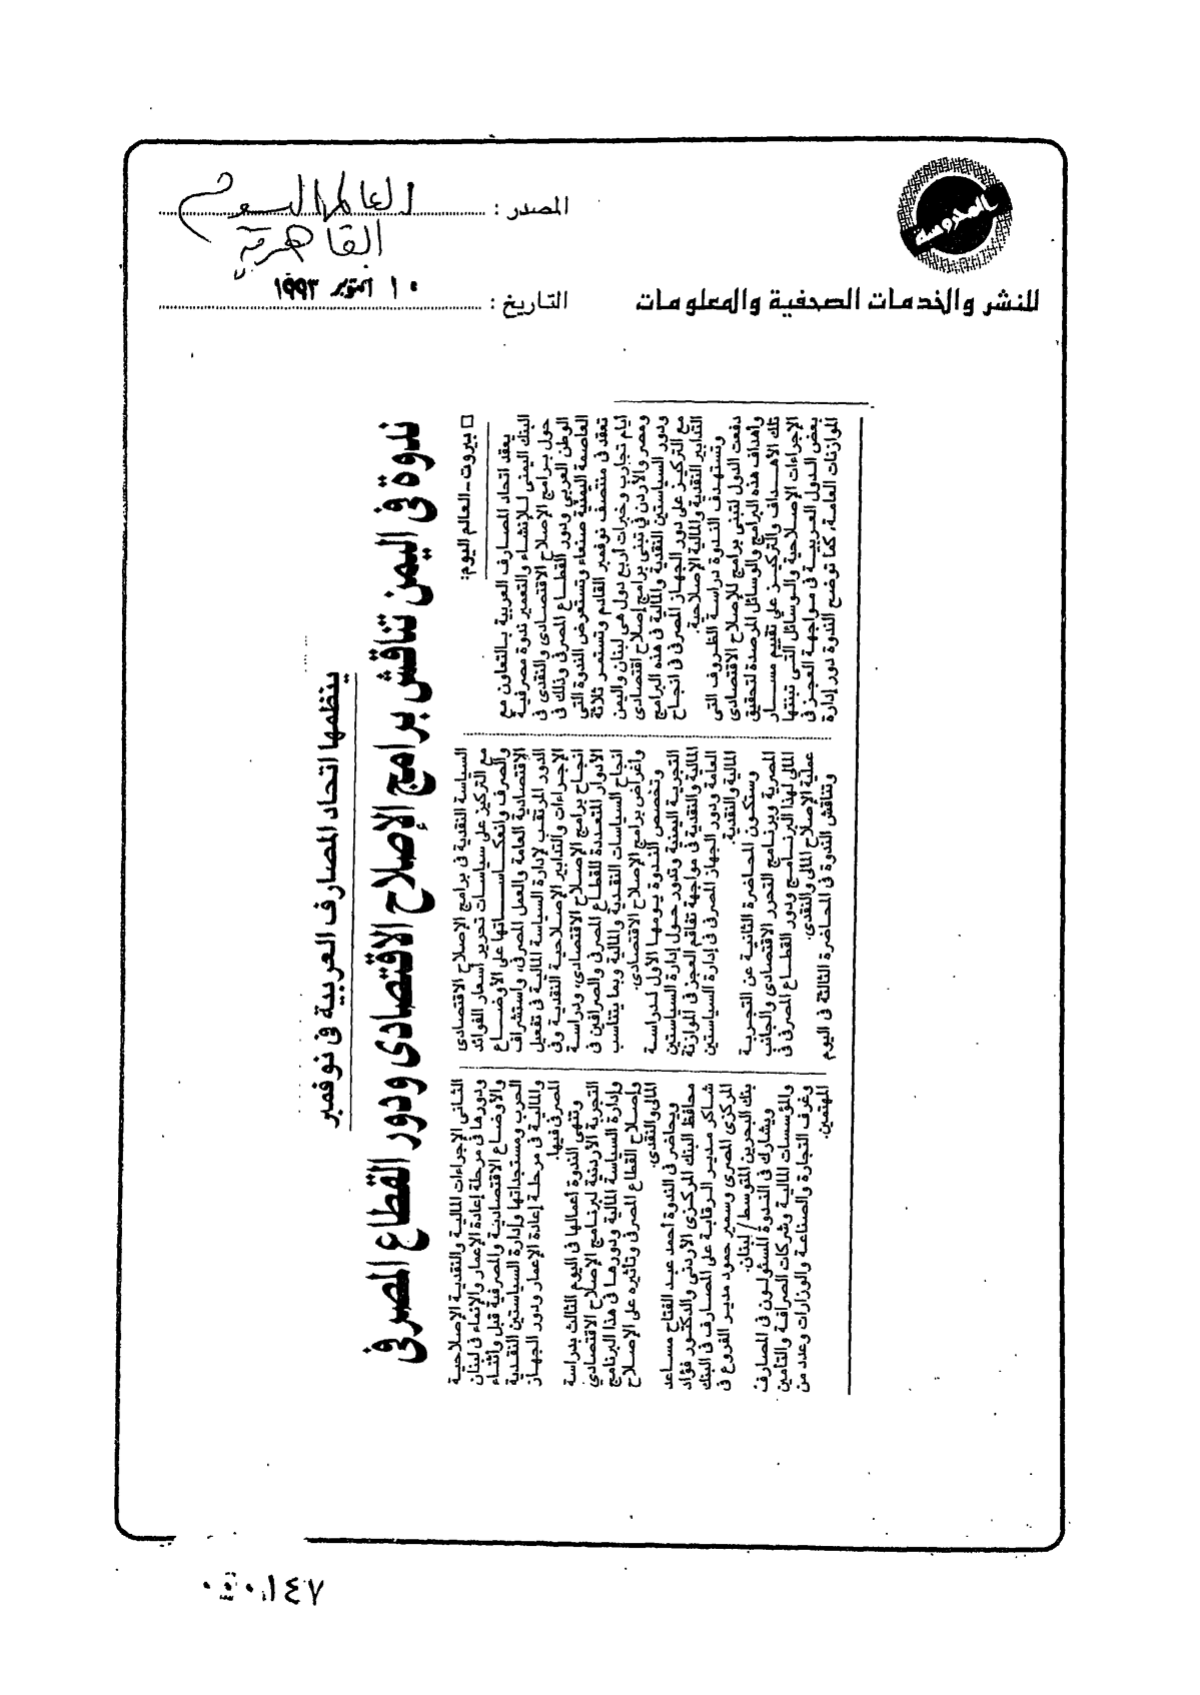 المحروسة
للنشر والخدمات الصحفية والمعلومات
المصدر : العالم اليوم
القاهرية
التاريخ : ١٠ أكتوبر ١٩٩٣
ينظمها اتحاد المصارف العربية فى نوفمبر
ندوة فى اليمن تناقش برامج الإصلاح الاقتصادى ودور القطاع المصرفى
□ بيروت - العالم اليوم:
يعقد اتحاد المصارف العربية بالتعاون مع
البنك اليمنى للإنشاء والتعمير ندوة مصرفية
حول برامج الإصلاح الاقتصادى والنقدى فى
الوطن العربي ودور القطاع المصرفى وذلك فى
العاصمة اليمنية صنعاء وتستعرض الندوة التى
تعقد فى منتصف نوفمبر القادم وتستمر ثلاثة
أيام تجارب وخبرات أربع دول هى لبنان واليمن
ومصر والأردن في تبنى برامج إصلاح اقتصادى
ودور السياستين النقدية والمالية فى هذه البرامج
مع التركيز على دور الجهاز المصرفى فى انجاح
التدابير النقدية والمالية الإصلاحية.
وتستهدف الندوة دراسة الظروف التى
دفعت الدول لتبنى برامج للإصلاح الاقتصادى
وأهداف هذه البرامج والوسائل المرصدة لتحقيق
تلك الأهداف والتركيز على تقييم مسار
الإجراءات الإصلاحية والوسائل التى تبنتها
بعض الدول العربية فى مواجهة العجز فى
الموازنات العامة، كما توضح الندوة دور إدارة
السياسة النقدية فى برامج الإصلاح الاقتصادى
مع التركيز على سياسات تحرير أسعار الفوائد
والصرف وانعكاساتها على الأوضاع
الاقتصادية العامة والعمل المصرفى، واستشراف
الدور المرتقب لإدارة السياسة المالية فى تفعيل
الإجراءات والتدابير الإصلاحية النقدية وفى
انجاح برامج الإصلاح الاقتصادى، ودراسة
الأدوار المتعددة للقطاع المصرفى والصرافين فى
انجاح السياسات النقدية والمالية وبما يتناسب
وأغراض برامج الإصلاح الاقتصادى.
وتخصص الندوة يومها الأول لدراسة
التجربة اليمنية وتدور حول إدارة السياستين
المالية والنقدية فى مواجهة تفاقم العجز فى الموازنة
العامة ودور الجهاز المصرفى فى إدارة السياستين
المالية والنقدية.
وستكون المحاضرة الثانية عن التجربة
المصرية وبرنامج التحرر الاقتصادى والجانب
المالى لهذا البرنامج ودور القطاع المصرفى فى
عملية الإصلاح المالى والنقدى.
وتناقش الندوة فى المحاضرة الثالثة فى اليوم
الثانى الإجراءات المالية والنقدية الإصلاحية
ودورها فى مرحلة إعادة الإعمار والإنماء فى لبنان
والأوضاع الاقتصادية والمصرفية قبل وأثناء
الحرب ومستجداتها وإدارة السياستين النقدية
والمالية فى مرحلة إعادة الإعمار ودور الجهاز
المصرفى فيها.
وتنتهى الندوة أعمالها فى اليوم الثالث بدراسة
التجربة الأردنية لبرنامج الإصلاح الاقتصادي
وإدارة السياسة المالية ودورها فى هذا البرنامج
وإصلاح القطاع المصرفى وتأثيره على الإصلاح
المالى والنقدى.
ويحاضر فى الندوة أحمد عبد الفتاح مساعد
محافظ البنك المركزى الأردني والدكتور فؤاد
شاكر مدير الرقابة على المصارف فى البنك
المركزى المصرى وسمير حمود مدير الفروع فى
بنك البحرين المتوسط/لبنان.
ويشارك فى الندوة المسئولون فى المصارف
والمؤسسات المالية وشركات الصرافة والتأمين
وغرف التجارة والصناعة والوزارات وعدد من
المهتمين.